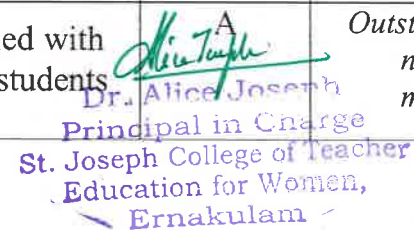 ed with
students
A
Outst
n
n
Alice Joseph
Dr. Alice Joseph
Principal in Charge
St. Joseph College of Teacher
Education for Women,
Ernakulam